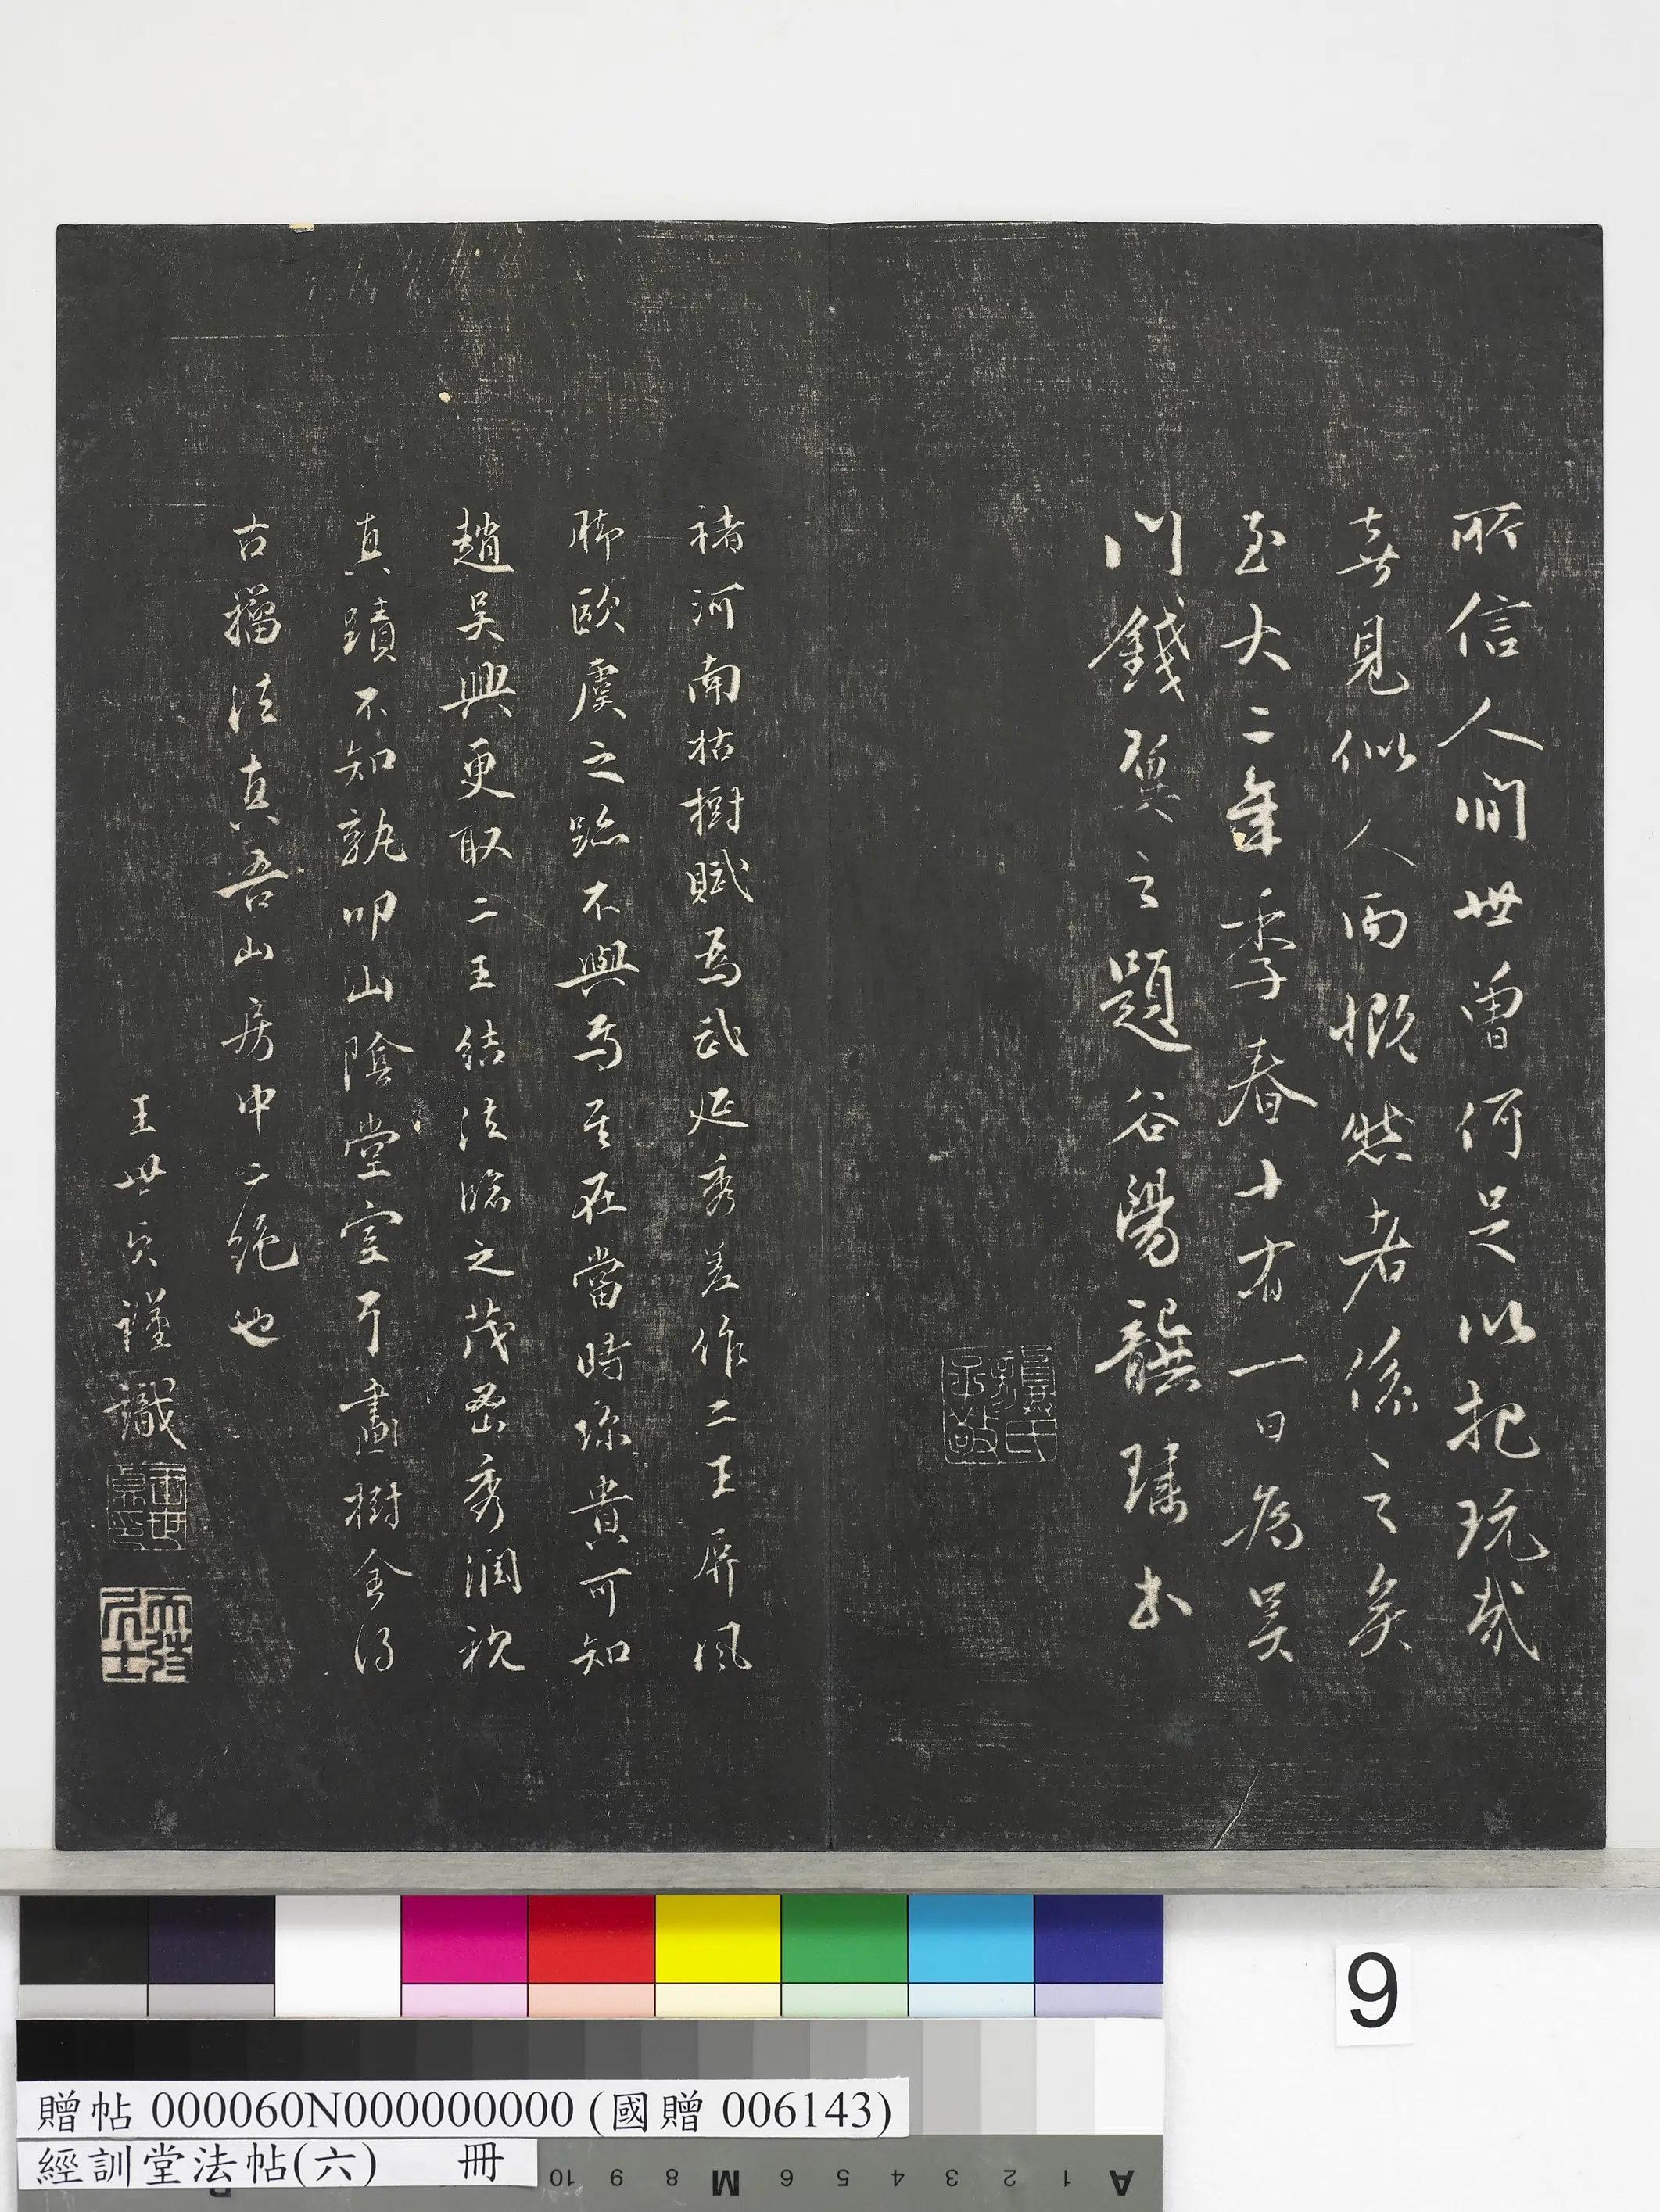 所信人間世曾何足以把玩哉
喜見似人而慨然者係之矣
至大二年季春十有一日為吳
門錢翼之題谷陽龔璛書
褚河南枯樹賦為武延秀差作二王屏風
腳歐虞之跡不與焉其在當時珍貴可知
趙吳興更取二王結法臨之茂密秀潤視
真蹟不知孰叩山陰堂室耳畫樹全得
古籀法真吾山房中二絕也
王世貞謹識
9
贈帖 000060N000000000 (國贈 006143)
經訓堂法帖(六) 冊
10 9 8 M 6 5 4 3 2 1 A